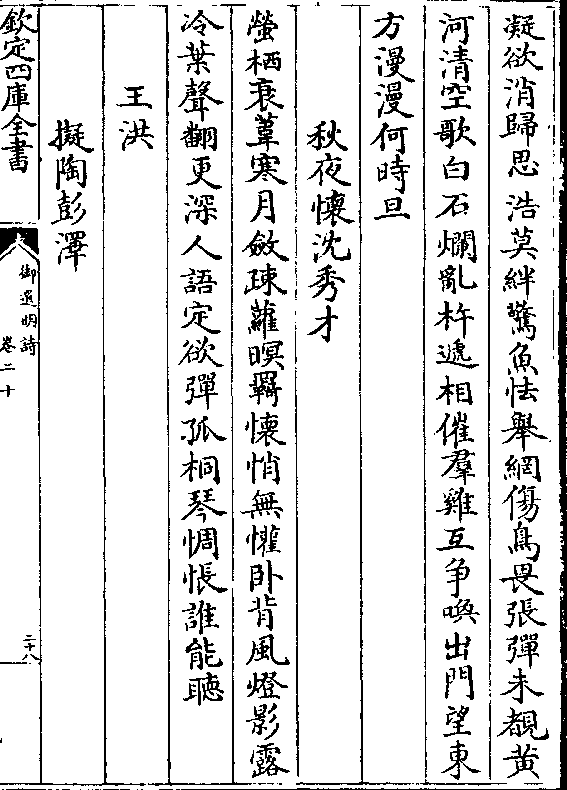 凝欲消歸思浩莫絆驚魚怯舉網傷鳥畏張彈未覩黄
河清空歌白石爛亂杵遞相催羣雞互争喚出門望東
方漫漫何時旦
秋夜懷沈秀才
螢栖衰葦寒月斂疎蘿暝羇懷悄無懽卧背風燈影露
冷葉聲翻更深人語定欲彈孤桐琴惆悵誰能聽
王洪
擬陶彭澤
欽定四庫全書
御選明詩
卷二十
二十八